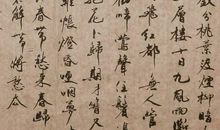 釵分桃葉渡煙柳暗
層樓十日九風雨
飛紅都無人管
啼鶯聲住鬢
把花卜歸期才簪又
羅帳燈昏哽咽夢
春帶愁來春歸
帶將愁去